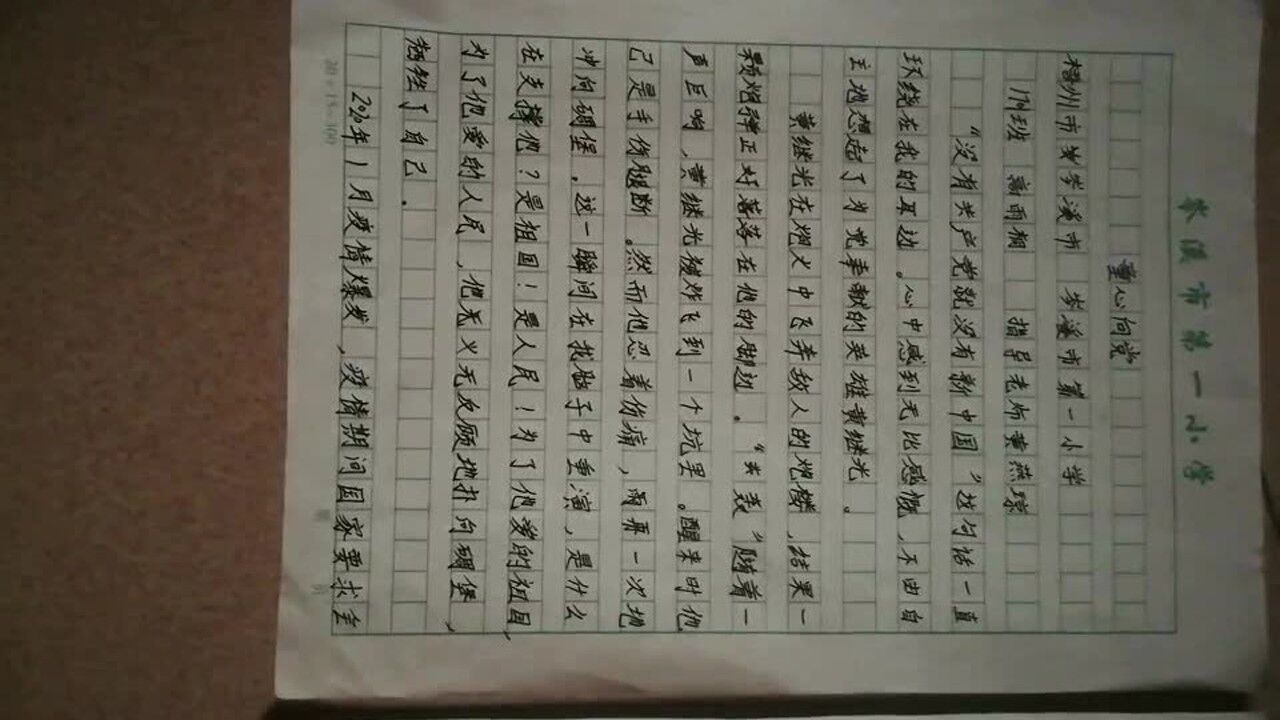 岑溪市第一小学
童心向党
梧州市岑溪市 岑溪市第一小学
班 高雨桐 指导老师黄燕琼
“没有共产党就没有新中国”这句话一直
环绕在我的耳边。心中感到无比感慨,不由自
主地想起了为党奉献的英雄黄继光。
黄继光在炮火中飞奔敌人的炮楼,结果一
颗炮弹正好落落在他的脚边。“轰”随着一
声巨响,黄继光被炸飞到一个坑里。醒来时他
已是手伤腿断。然而他忍着伤痛,而再一次地
冲向碉堡。这一瞬间在我脑子中重演,是什么
在支撑他?是祖国!是人民!为了他爱的祖国,
为了他爱的人民,他无义无反顾地扑向碉堡,
牺牲了自己.
2020年1月疫情爆发,疫情期间国家要求全
20×15=300